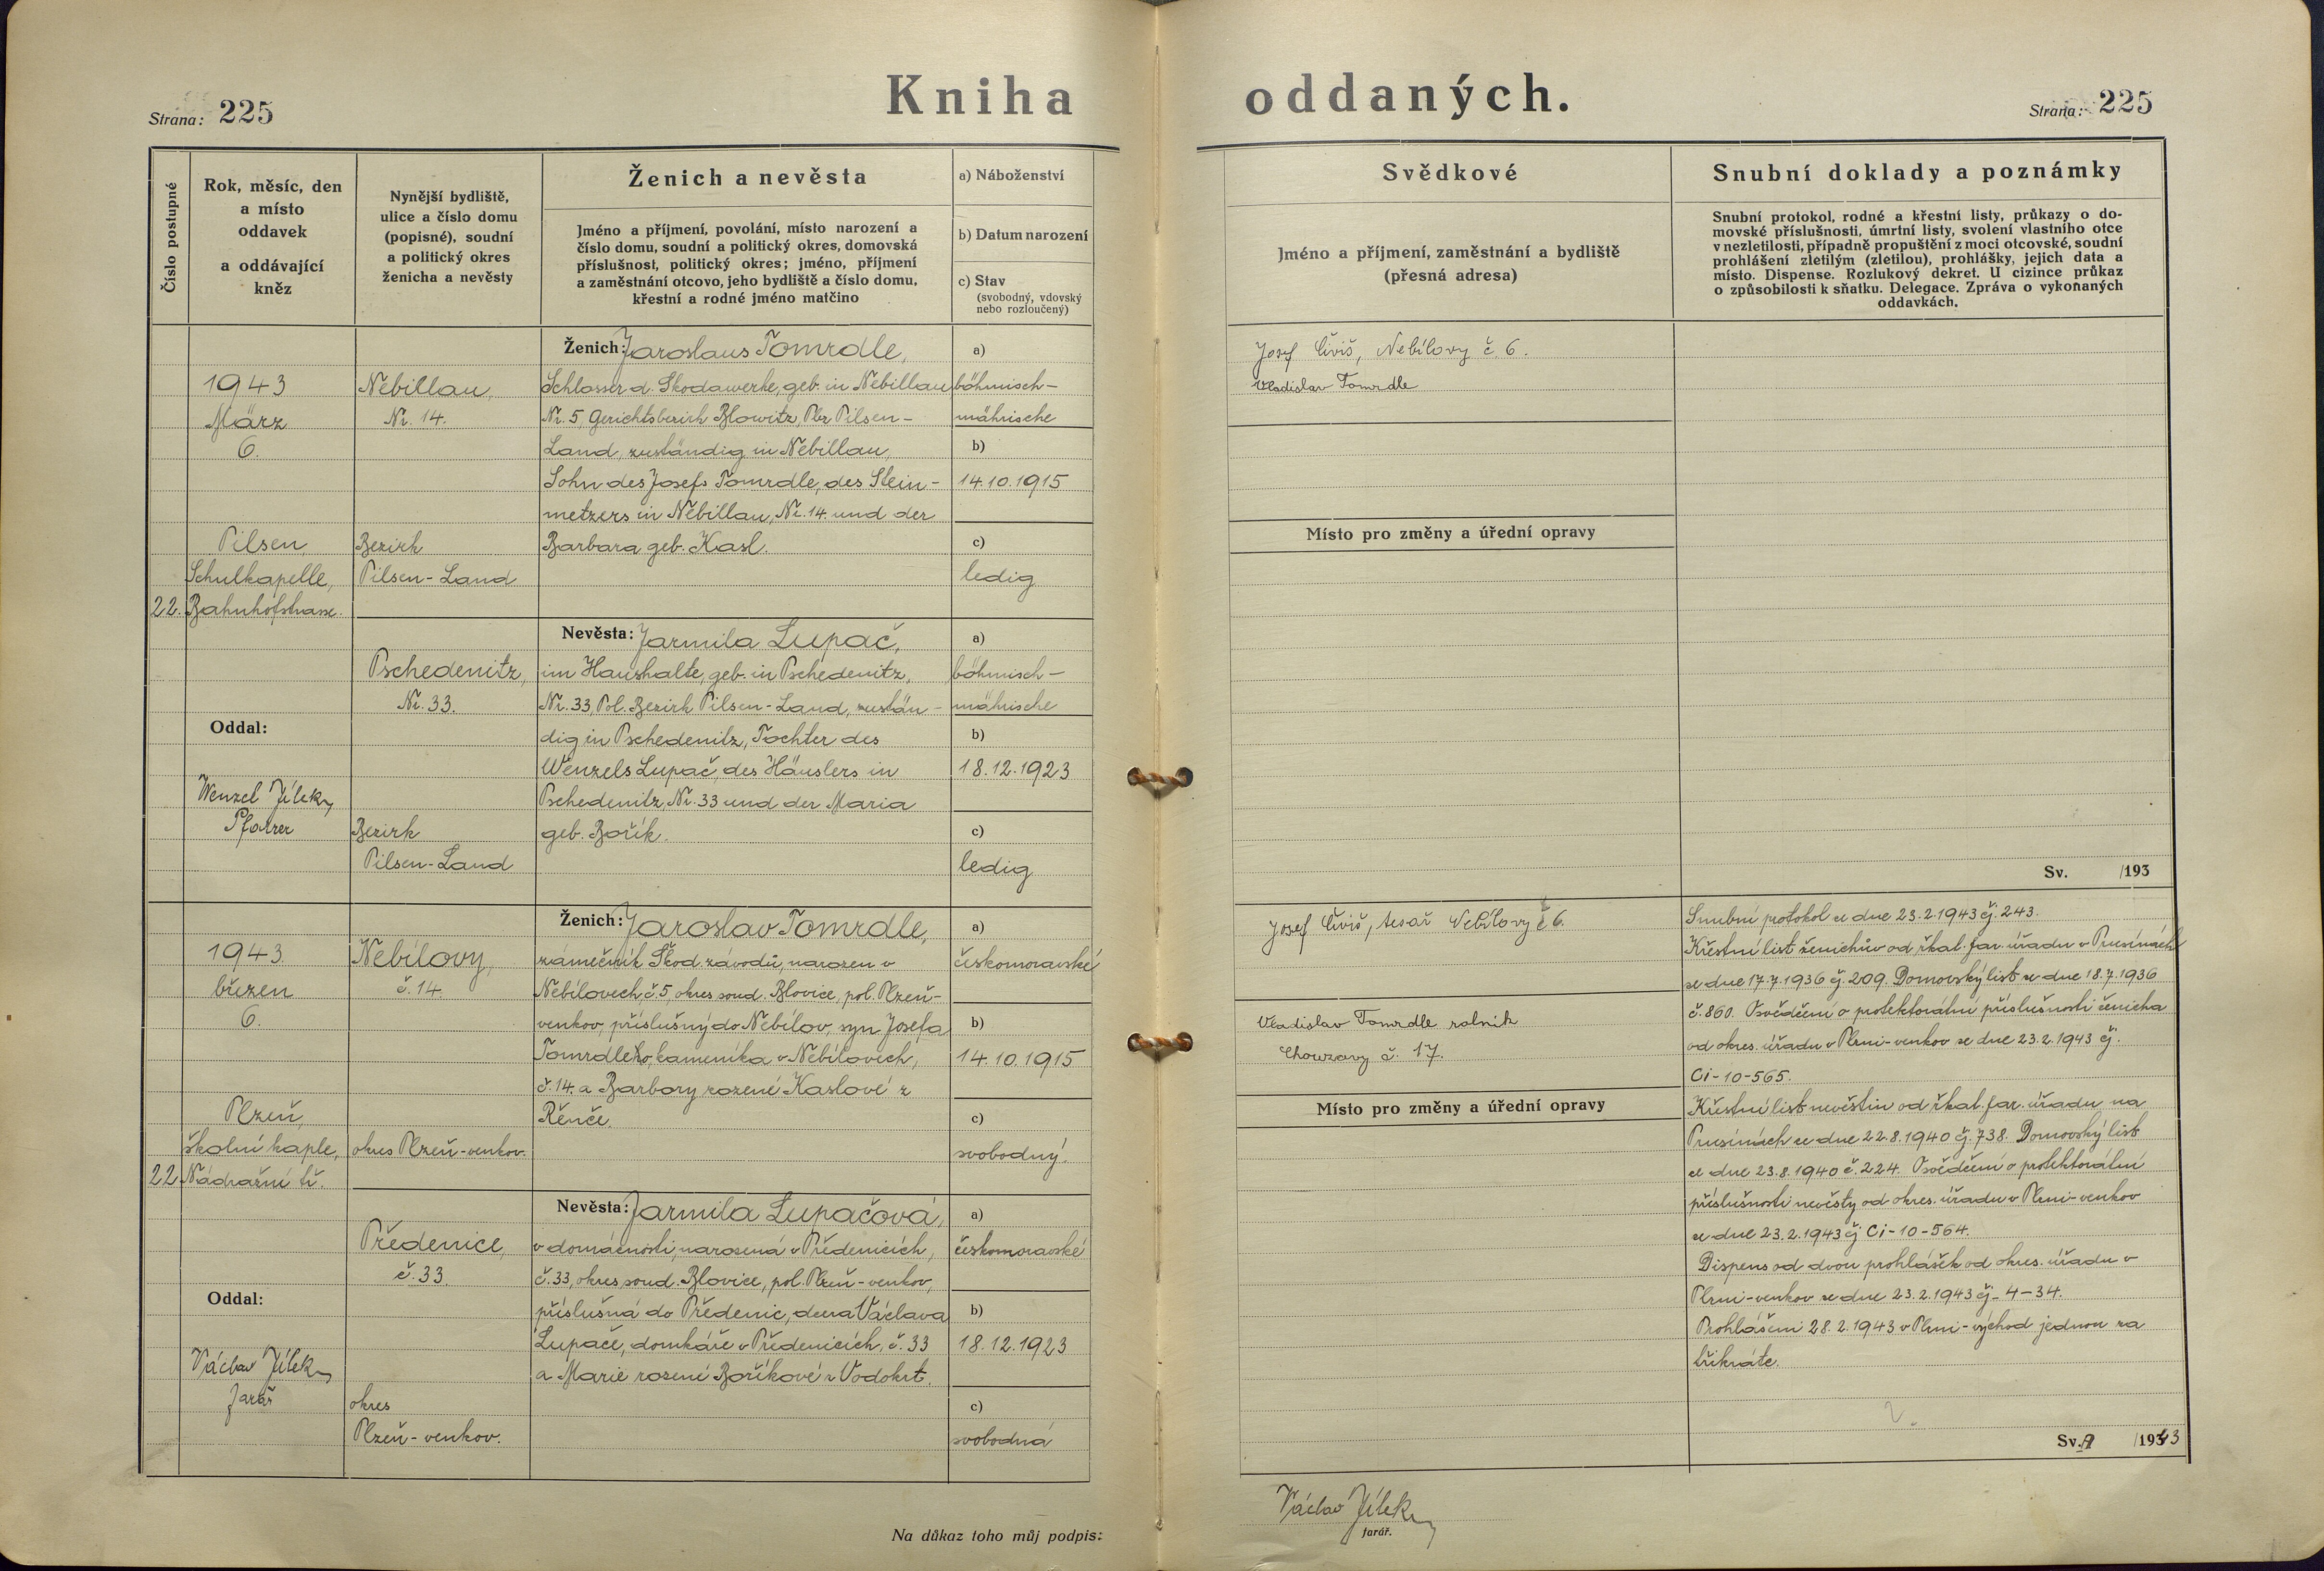 Strana: 225
Kniha oddaných.
Strana: 225
Číslo postupné
Rok, měsíc, den
a místo
oddavek
a oddávající
kněz
Nynější bydliště,
ulice a číslo domu
(popisné), soudní
a politický okres
ženicha a nevěsty
Ženich a nevěsta
Jméno a příjmení, povolání, místo narození a
číslo domu, soudní a politický okres, domovská
příslušnost, politický okres; jméno, příjmení
a zaměstnání otcovo, jeho bydliště a číslo domu,
křestní a rodné jméno matčino
a) Náboženství
b) Datum narození
c) Stav
(svobodný, vdovský
nebo rozloučený)
Svědkové
Jméno a příjmení, zaměstnání a bydliště
(přesná adresa)
Snubní doklady a poznámky
Snubní protokol, rodné a křestní listy, průkazy o do-
movské příslušnosti, úmrtní listy, svolení vlastního otce
v nezletilosti, případně propuštění z moci otcovské, soudní
prohlášení zletilým (zletilou), prohlášky, jejich data a
místo. Dispense. Rozlukový dekret. U cizince průkaz
o způsobilosti k sňatku. Delegace. Zpráva o vykonaných
oddavkách.
22.
1943
März
6.
Pilsen
Schulkapelle,
Bahnhofstrasse.
Oddal:
Wenzel Jílek,
Pfarrer
Nebillau,
Nr. 14.
Bezirk
Pilsen-Land
Ženich: Jaroslaus Tomrdle,
Schlosser d. Škodawerke, geb. in Nebillau
Nr. 5, Gerichtsbezirk Blowitz, Pbz Pilsen-
Land, zuständig in Nebillau,
Sohn des Josefs Tomrdle, des Stein-
metzers in Nebillau, Nr. 14. und der
Barbara geb. Kasl.
a)
böhmisch-
mährische
b)
14.10.1915
c)
ledig
Pschedenitz,
Nr. 33.
Bezirk
Pilsen-Land
Nevěsta: Jarmila Lupač,
im Haushalte, geb. in Pschedenitz,
Nr. 33, Pol. Bezirk Pilsen-Land, zustän-
dig in Pschedenitz, Tochter des
Wenzels Lupač, des Häuslers in
Pschedenitz, Nr. 33 und der Maria
geb. Bořík.
a)
böhmisch-
mährische
b)
18.12.1923
c)
ledig
Josef Čiviš, Nebílovy č. 6.
Vladislav Tomrdle
Místo pro změny a úřední opravy
Sv. /193
22.
1943.
březen
6.
Plzeň,
školní kaple,
Nádražní tř.
Oddal:
Václav Jílek,
farář
Nebílovy,
č. 14.
okres Plzeň-venkov.
Ženich: Jaroslav Tomrdle,
zámečník Škod. závodů, narozen v
Nebílovech, č. 5, okres soud. Blovice, pol. Plzeň-
venkov, příslušný do Nebílov, syn Josefa
Tomrdleho, kameníka v Nebílovech,
č. 14. a Barbory rozené Kaslové z
Řenče.
a)
českomoravské
b)
14.10.1915
c)
svobodný.
Předenice,
č. 33.
okres
Plzeň-venkov.
Nevěsta: Jarmila Lupačová,
v domácnosti, narozená v Předenicích,
č. 33, okres soud. Blovice, pol. Plzeň-venkov,
příslušná do Předenic, dcera Václava
Lupače, domkáře v Předenicích, č. 33
a Marie rozené Boříkové z Vodokrt.
a)
českomoravské
b)
18.12.1923
c)
svobodná
Josef Čiviš, tesař Nebílovy č 6.
Vladislav Tomrdle rolník
Chouzovy č. 17.
Místo pro změny a úřední opravy
Snubní protokol ze dne 23.2.1943 čj. 243.
Křestní list ženichův od řkat. far. úřadu v Prusinách
ze dne 17.7.1936 čj. 209. Domovský list ze dne 18.7.1936
č. 860. Osvědčení o protektorátní příslušnosti ženicha
od okres. úřadu v Plzni-venkov ze dne 23.2.1943 čj.
Ci-10-565.
Křestní list nevěstin od řkat. far. úřadu na
Prusinách ze dne 22.8.1940 čj. 738. Domovský list
ze dne 23.8.1940 č. 224. Osvědčení o protektorátní
příslušnosti nevěsty od okres. úřadu v Plzni-venkov
ze dne 23.2.1943 čj Ci-10-564.
Dispens od dvou prohlášek od okres. úřadu v
Plzni-venkov ze dne 23.2.1943 čj-4-34.
Prohlášeni 28.2.1943 v Plzni-východ jednou za
třikráte.
Sv. /193 43
Na důkaz toho můj podpis:
Václav Jílek
farář.